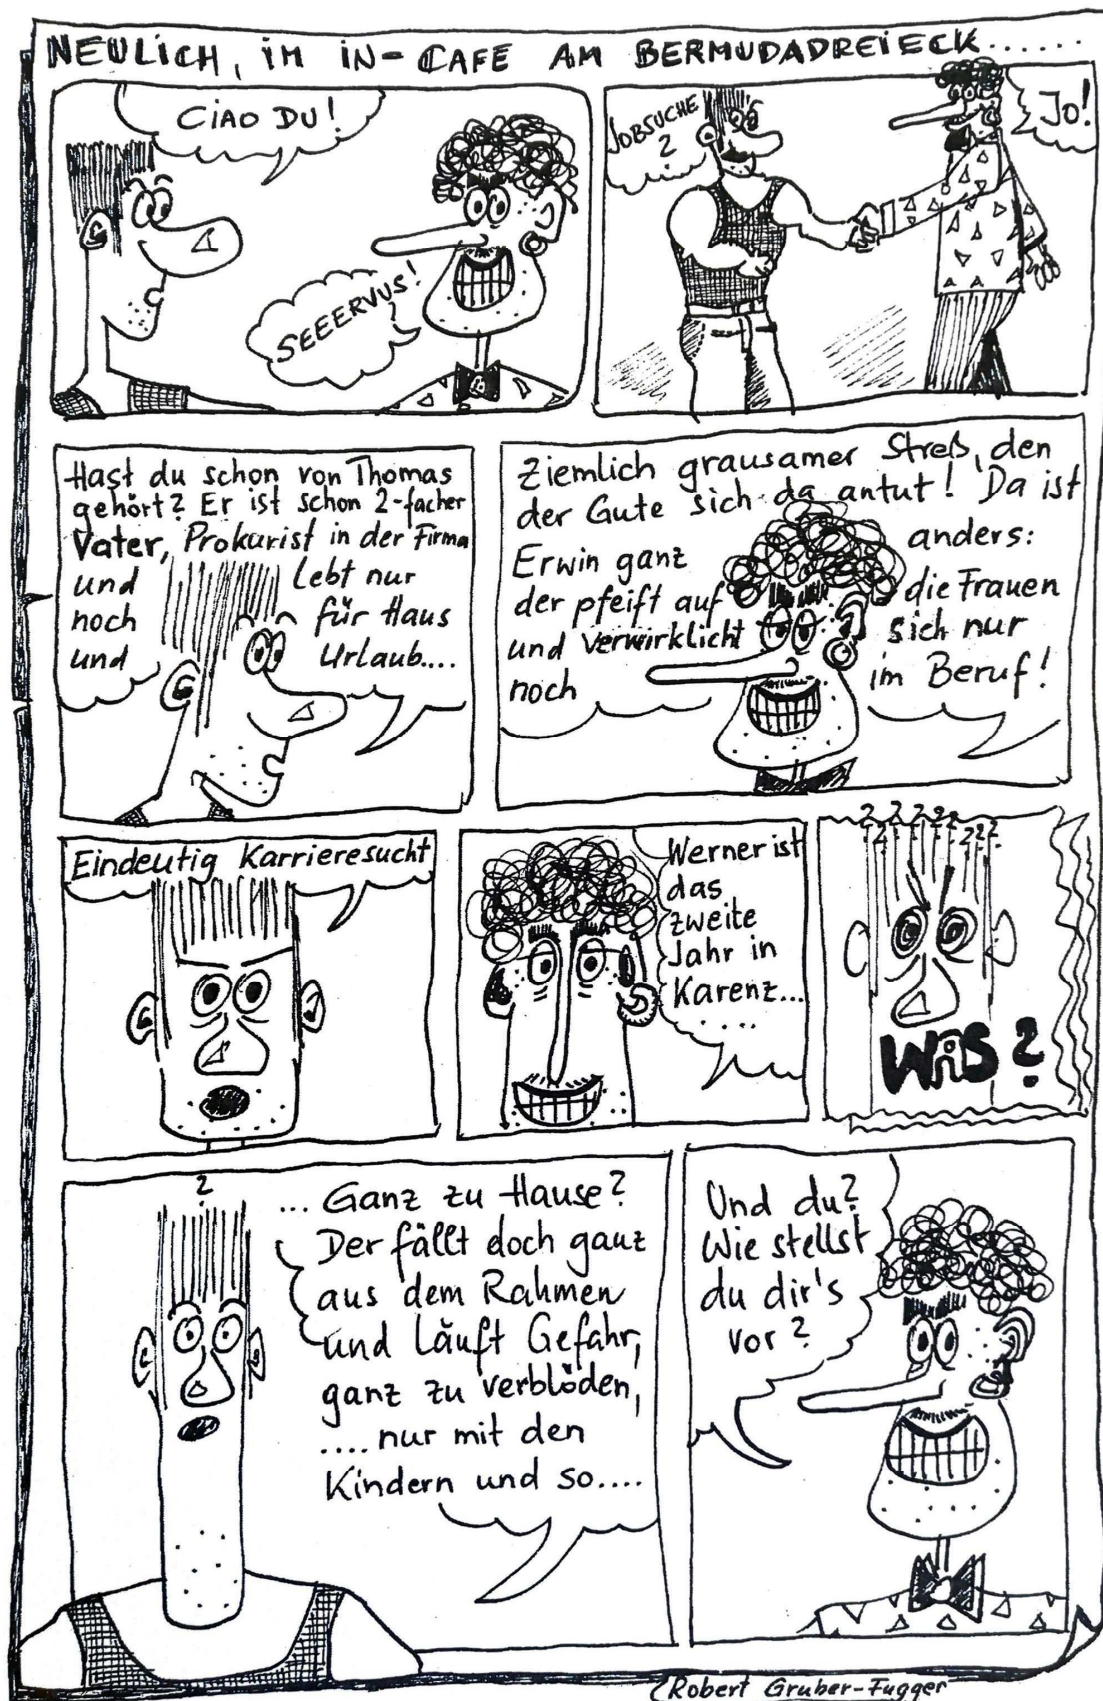 NEULICH, IM IN-CAFE AM BERMUDADREIECK......
CIAO DU!
SEEERVUS!
JOBSUCHE
?
JO!
Hast du schon von Thomas
gehört? Er ist schon 2-facher
Vater, Prokurist in der Firma
und lebt nur
noch für Haus
und Urlaub....
Ziemlich grausamer Streß, den
der Gute sich da antut! Da ist
Erwin ganz anders:
der pfeift auf die Frauen
und verwirklicht sich nur
noch im Beruf!
Eindeutig Karrieresucht
Werner ist
das
zweite
Jahr in
Karenz...
....
? ? ? ? ? ? ? ? ?
WAS?
?
... Ganz zu Hause?
Der fällt doch ganz
aus dem Rahmen
und läuft Gefahr,
ganz zu verblöden,
.... nur mit den
Kindern und so....
Und du?
Wie stellst
du dir's
vor?
Robert Gruber-Fugger